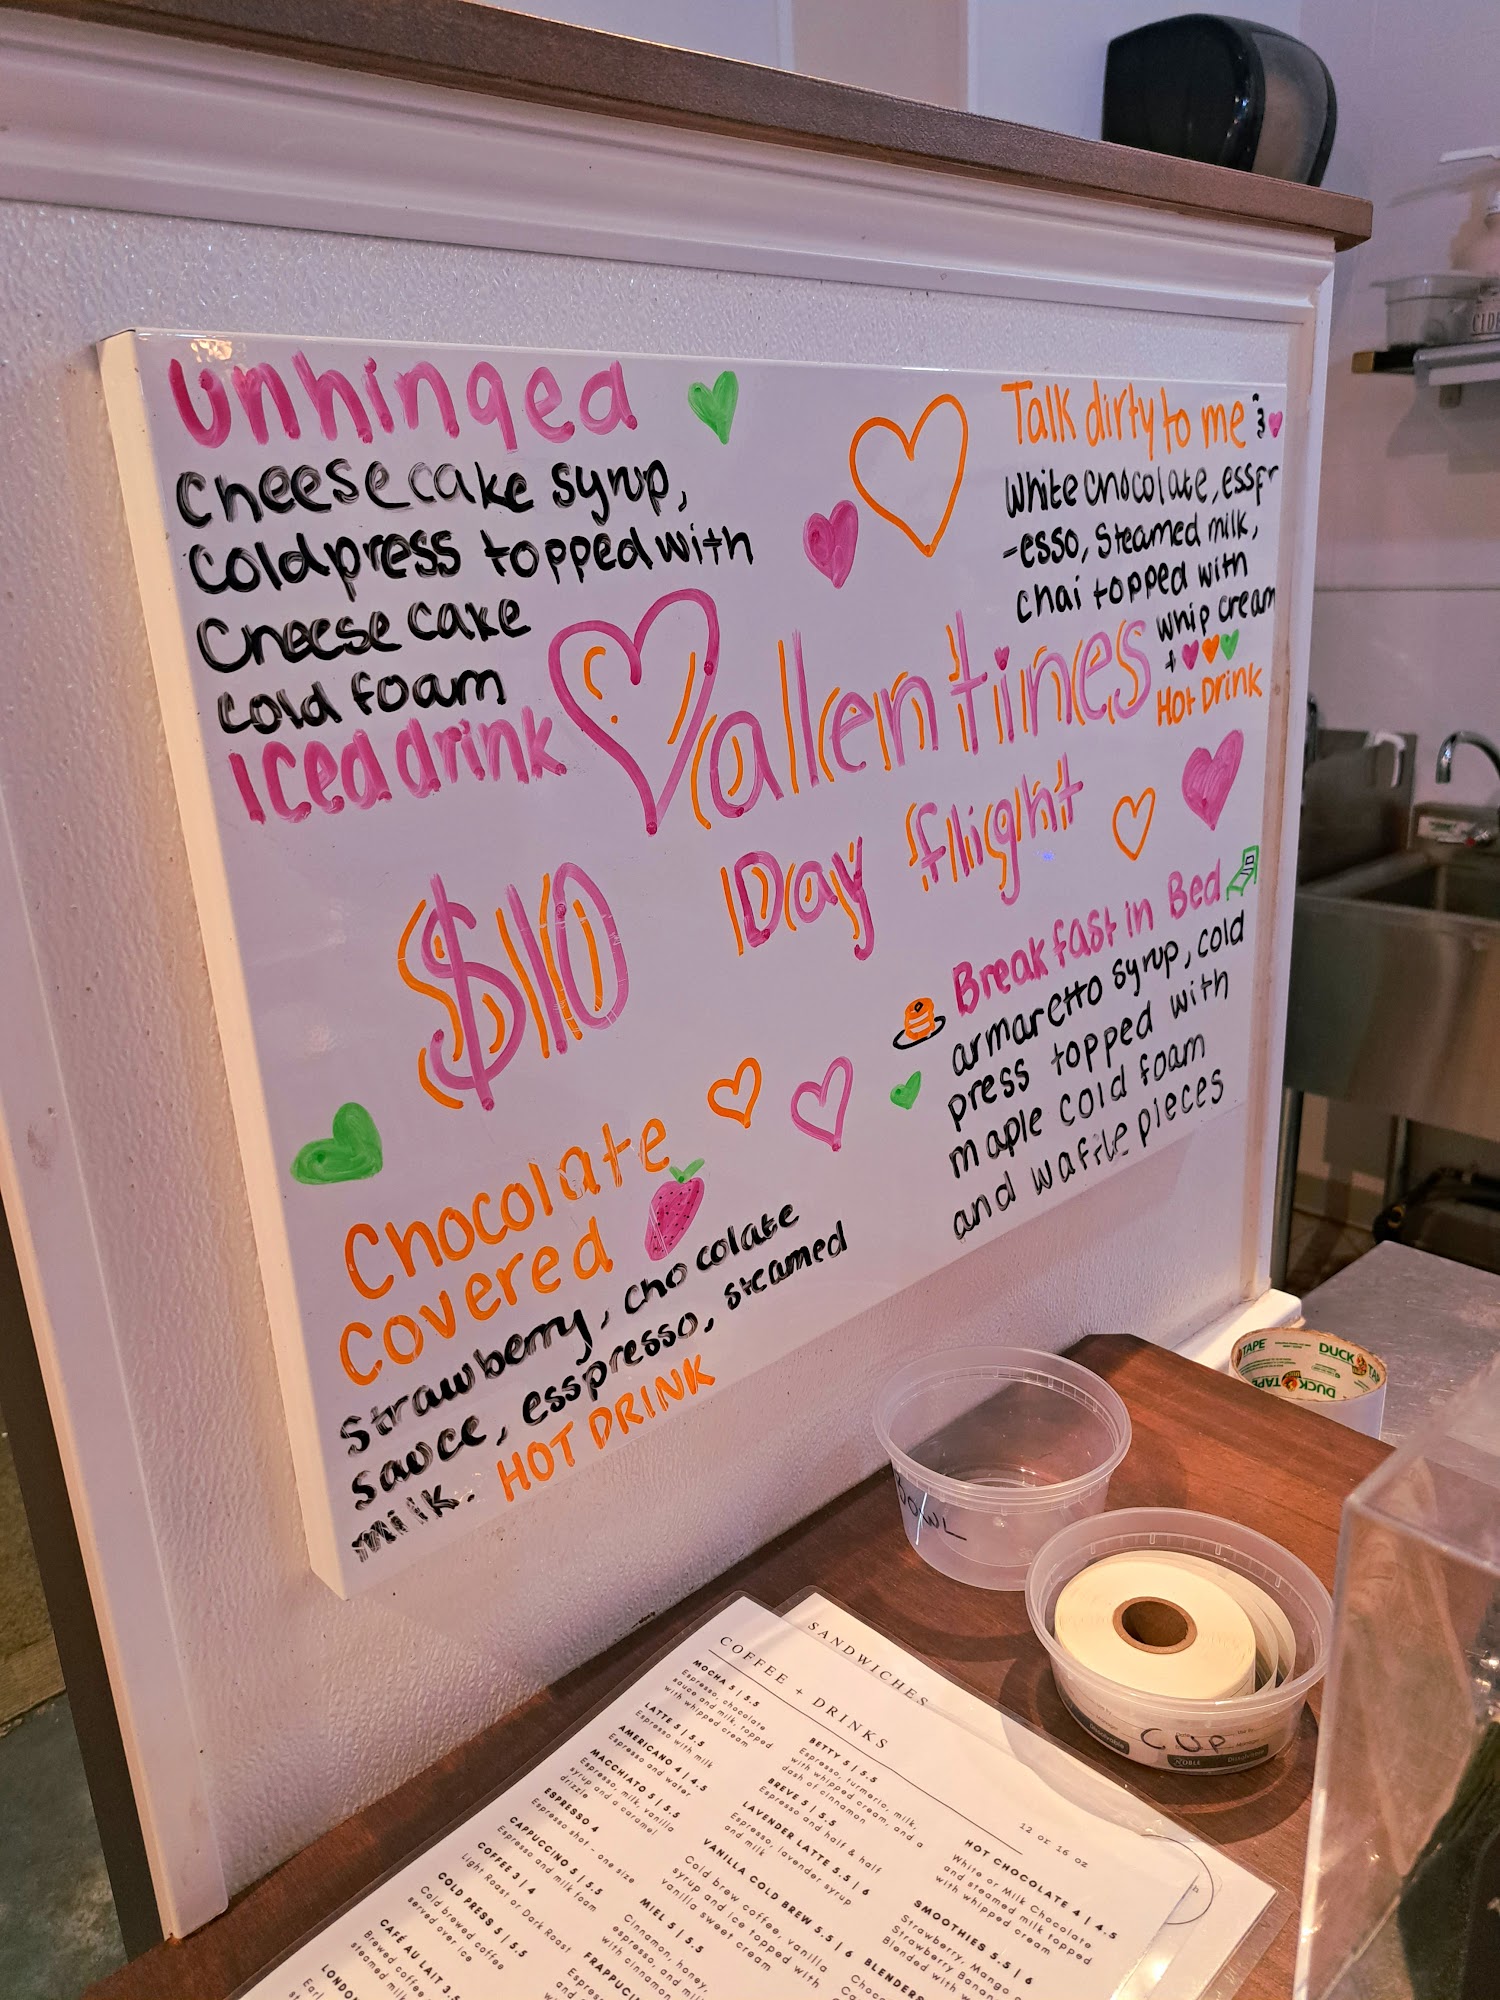 Unhinged
Cheesecake syrup,
Coldpress topped with
Cheese cake
cold foam
Iced drink
Talk dirty to me
White chocolate, esspr
-esso, Steamed milk,
chai topped with
whip cream
+
Hot Drink
Valentines
Day flight
$10
Breakfast in Bed
armaretto syrup, cold
press topped with
maple cold foam
and waffle pieces
Chocolate
Covered
Strawberry, chocolate
sauce, esspresso, steamed
milk. HOT DRINK
DUCK
TAPE
BOWL
CUP
SANDWICHES
COFFEE + DRINKS
12 or 16 oz
MOCHA 5 | 5.5
Espresso, chocolate
sauce and milk, topped
with whipped cream
LATTE 5 | 5.5
Espresso with milk
AMERICANO 4 | 4.5
Espresso and water
MACCHIATO 5 | 5.5
Espresso, milk, vanilla
syrup and a caramel
drizzle
ESPRESSO 4
Espresso shot - one size
CAPPUCCINO 5 | 5.5
Espresso and milk foam
COFFEE 3 | 4
Light Roast or Dark Roast
COLD PRESS 5 | 5.5
Cold brewed coffee
served over ice
CAFÉ AU LAIT 3.5
Brewed coffee
steamed milk
BETTY 5 | 5.5
Espresso, turmeric, milk,
with whipped cream, and a
dash of cinnamon
BREVE 5 | 5.5
Espresso and half & half
LAVENDER LATTE 5.5 | 6
Espresso, lavender syrup
and milk
VANILLA COLD BREW 5.5 | 6
Cold brew coffee, vanilla
syrup and ice topped with
vanilla sweet cream
MIEL 5 | 5.5
Cinnamon, honey,
espresso, and milk
with cinnamon
HOT CHOCOLATE 4 | 4.5
White or Milk Chocolate
and steamed milk topped
with whipped cream
SMOOTHIES 5.5 | 6
Strawberry, Mango
Strawberry Banana
Blended with
BLENDERS